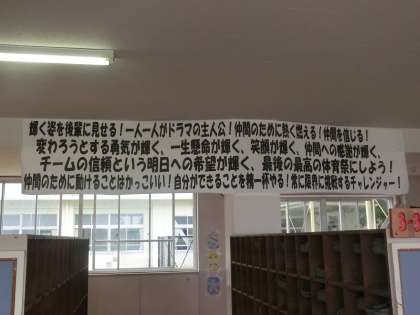 輝く姿を後輩に見せる！一人一人がドラマの主人公！仲間のために熱く燃える！仲間を信じる！
変わろうとする勇気が輝く、一生懸命が輝く、笑顔が輝く、仲間への感謝が輝く、
チームの信頼という明日への希望が輝く、最後の最高の体育祭にしよう！
仲間のために動けることはかっこいい！自分ができることを精一杯やる！常に限界に挑戦するチャレンジャー！
3-3